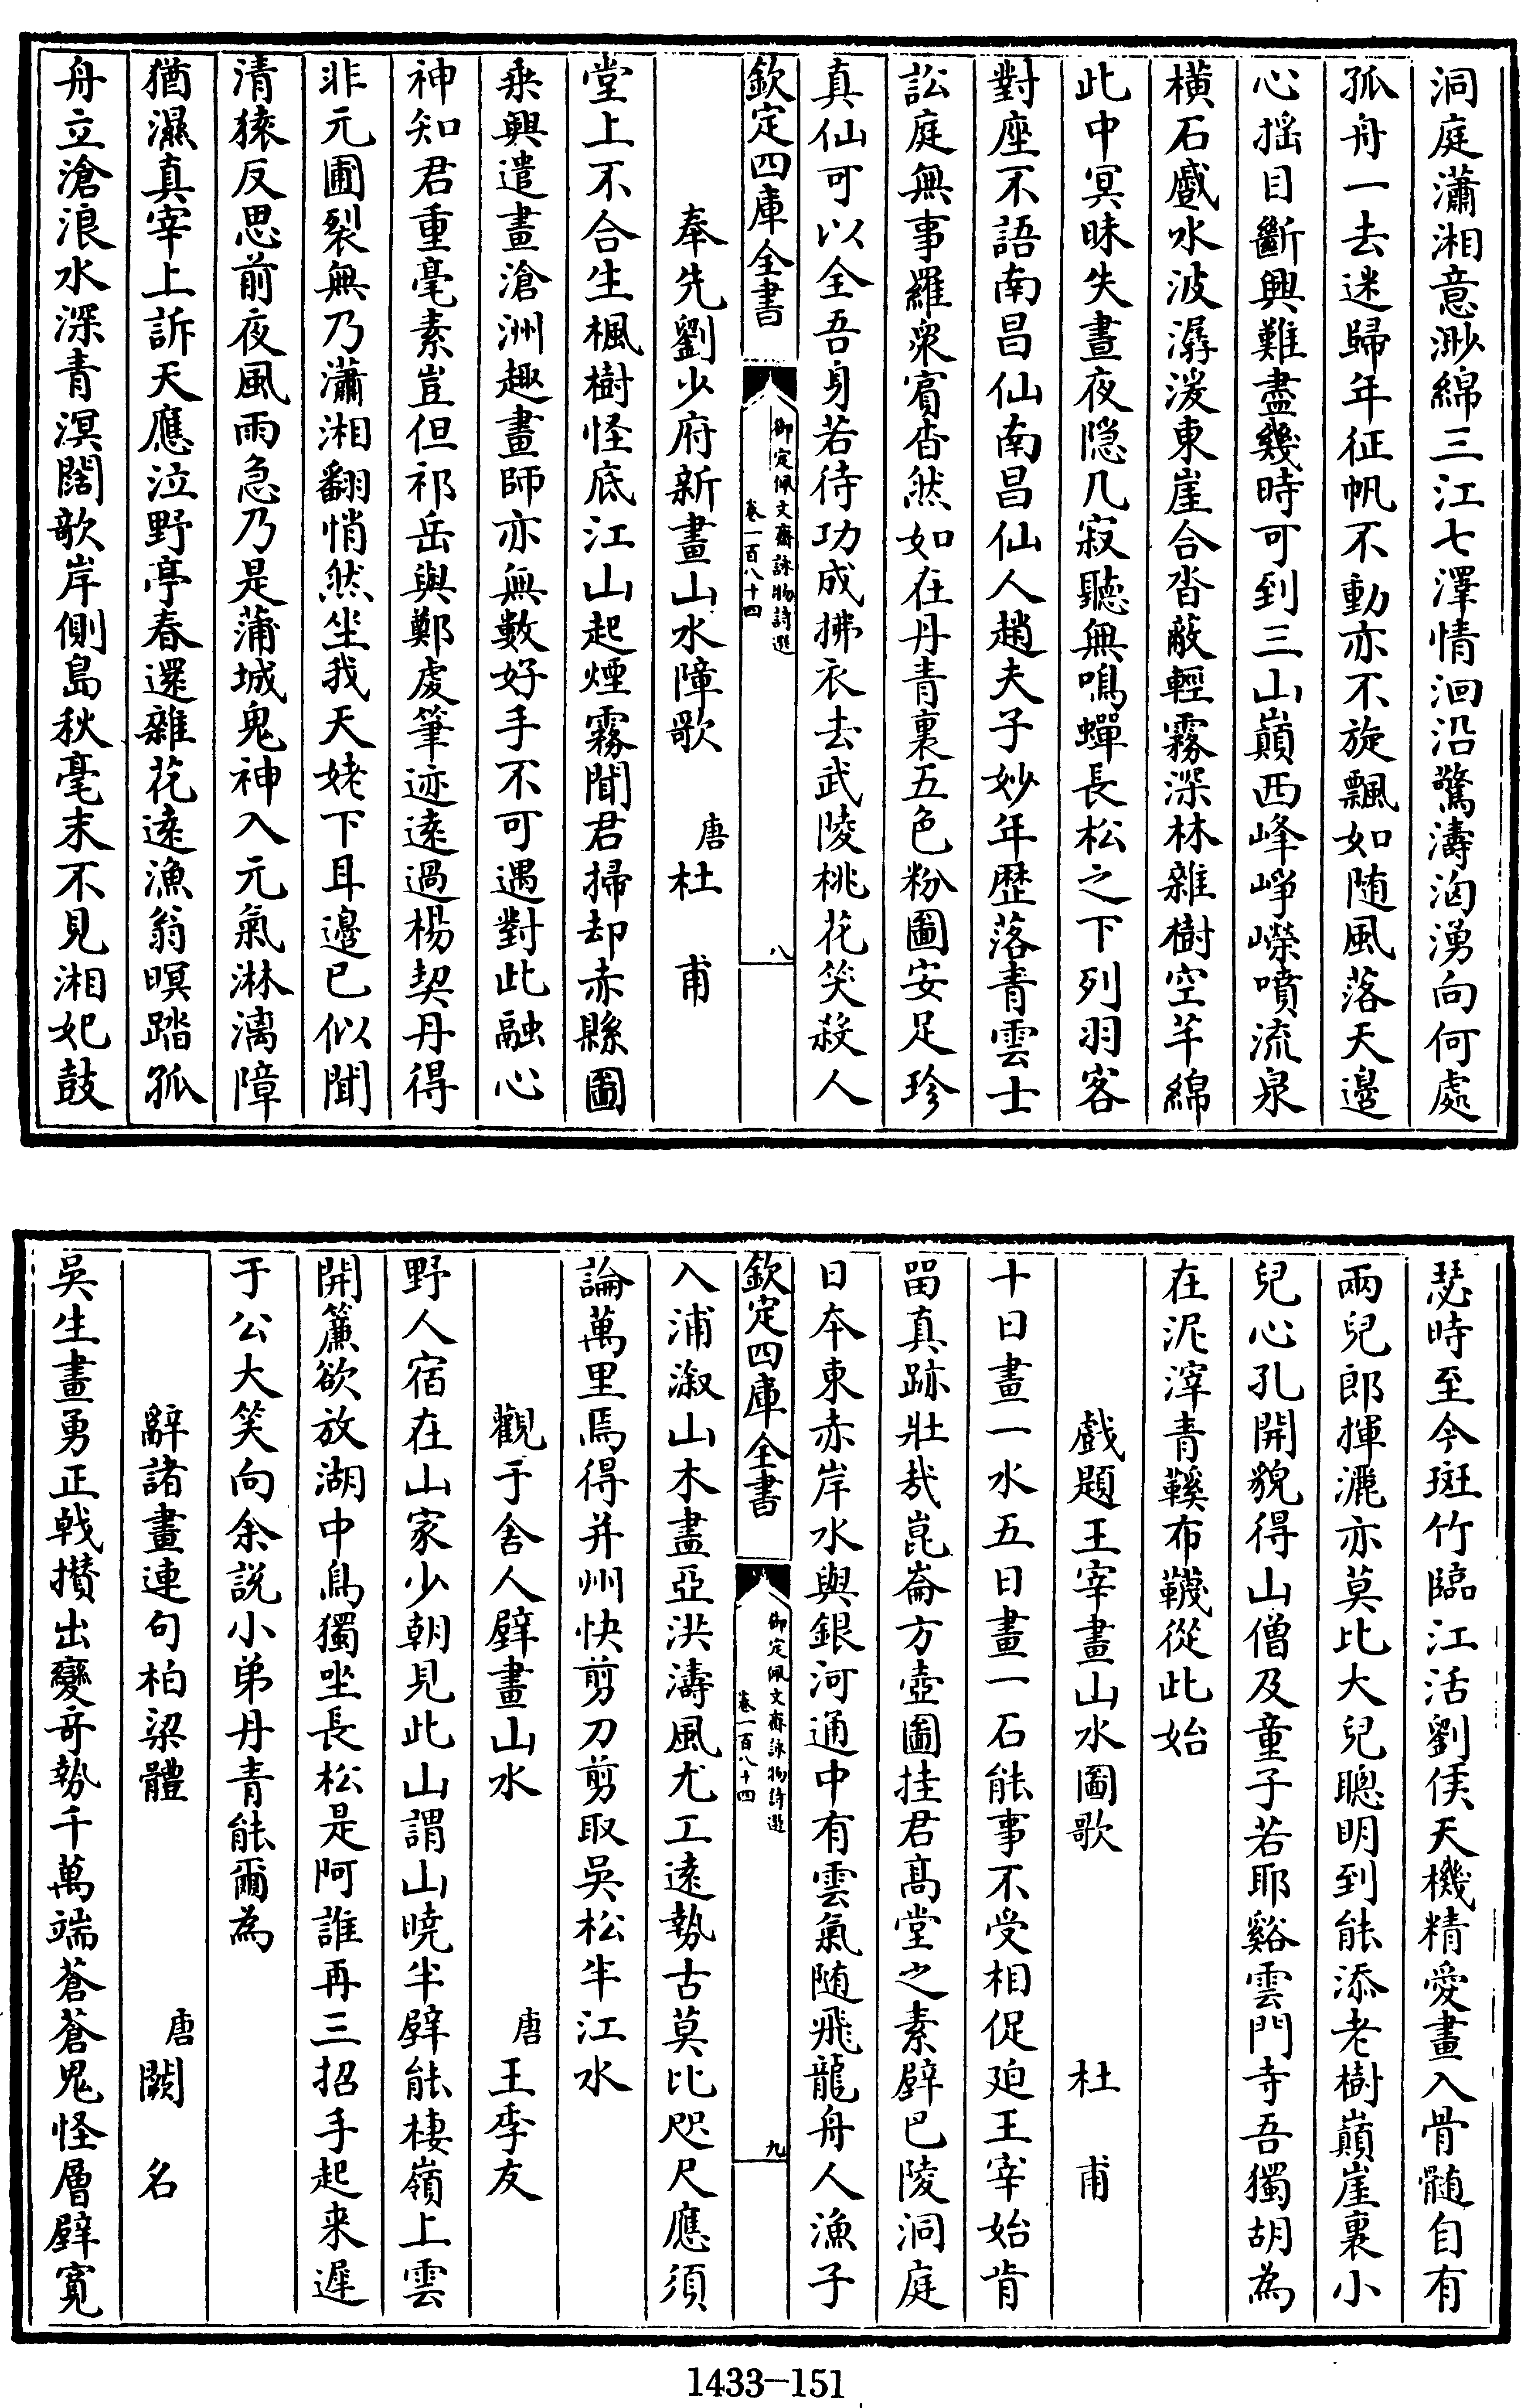 洞庭瀟湘意渺綿三江七澤情洄沿驚濤洶湧向何處
孤舟一去迷歸年征帆不動亦不旋飄如随風落天邉
心揺目斷興難盡幾時可到三山巔西峰崢嶸噴流泉
橫石蹙水波潺湲東崖合沓蔽輕霧深林雜樹空芊綿
此中冥昧失晝夜隠几寂聽無鳴蟬長松之下列羽客
對座不語南昌仙南昌仙人趙夫子妙年歴落青雲士
訟庭無事羅衆賓杳然如在丹青裏五色粉圖安足珍
真仙可以全吾身若待功成拂衣去武陵桃花笑殺人
欽定四庫全書
御定佩文齋詠物詩選
卷一百八十四
八
奉先劉少府新畫山水障歌 唐杜甫
堂上不合生楓樹怪底江山起煙霧聞君掃却赤縣圖
乗興遣畫滄洲趣畫師亦無數好手不可遇對此融心
神知君重毫素豈但祁岳與鄭虔筆迹逺過楊契丹得
非元圃裂無乃瀟湘翻悄然坐我天姥下耳邉已似聞
清猿反思前夜風雨急乃是蒲城鬼神入元氣淋漓障
猶濕真宰上訴天應泣野亭春還雜花逺漁翁暝踏孤
舟立滄浪水深青溟闊欹岸側島秋毫末不見湘妃鼓
瑟時至今斑竹臨江活劉侯天機精愛畫入骨髄自有
兩兒郎揮灑亦莫比大兒聰明到能添老樹巔崖裏小
兒心孔開貌得山僧及童子若耶谿雲門寺吾獨胡為
在泥滓青鞵布韈從此始
戲題王宰畫山水圖歌 杜甫
十日畫一水五日畫一石能事不受相促廹王宰始肯
畱真跡壯㢤崑崙方壺圖挂君髙堂之素壁巴陵洞庭
日本東赤岸水與銀河通中有雲氣随飛龍舟人漁子
欽定四庫全書
御定佩文齋詠物詩選
卷一百八十四
九
入浦溆山木盡亞洪濤風尤工逺勢古莫比咫尺應須
論萬里焉得并州快剪刀剪取吳松半江水
觀于舍人壁畫山水 唐王季友
野人宿在山家少朝見此山謂山曉半壁能棲嶺上雲
開簾欲放湖中鳥獨坐長松是阿誰再三招手起来遲
于公大笑向余説小弟丹青能爾為
辭諸畫連句柏梁體 唐闕名
吳生畫勇正戟攅出變奇勢千萬端蒼蒼鬼怪層壁寛
1433-151